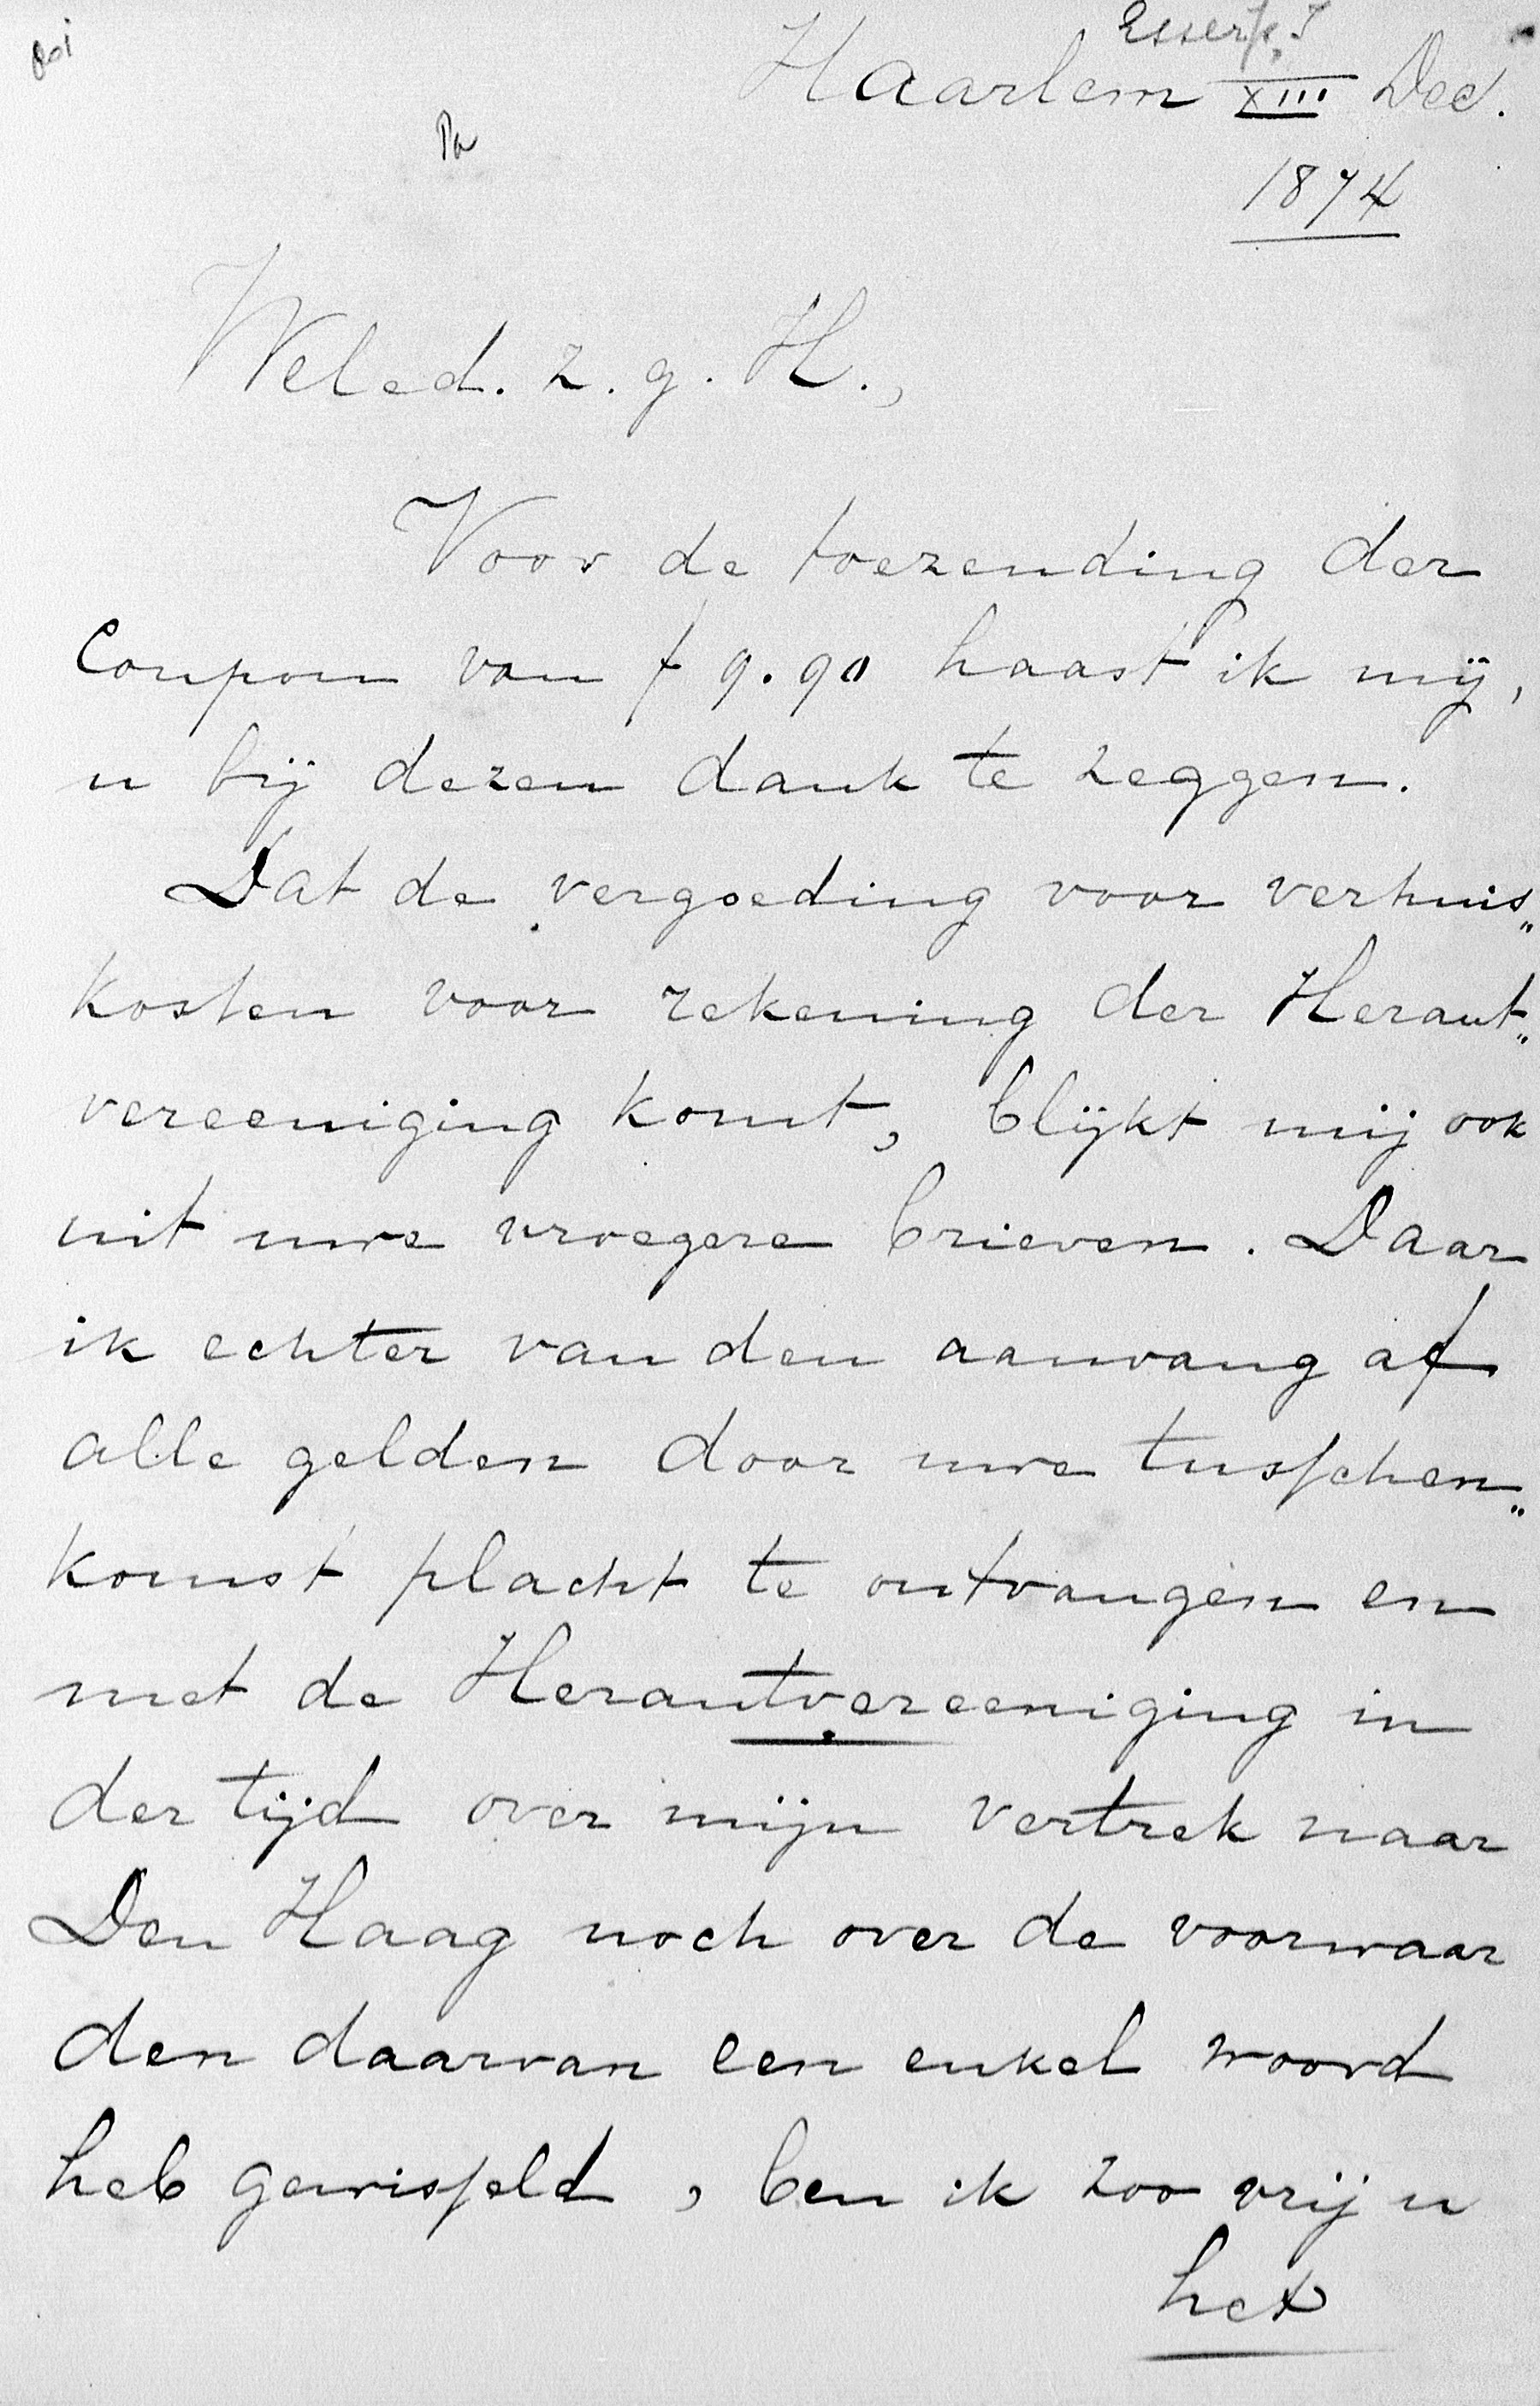 Esser Jr. I
Haarlem XIII Dec.
1874
Weled. z. g. H.,
Voor de toezending der
Coupon van f 9.90 haast ik mij,
u bij dezen dank te zeggen.
Dat de vergoeding voor verhuis„
kosten voor rekening der Heraut„
vereeniging komt, blijkt mij ook
uit uwe vroegere brieven. Daar
ik echter van den aanvang af
alle gelden door uwe tusschen„
komst placht te ontvangen en
met de Herautvereeniging in
der tijd over mijn vertrek naar
Den Haag noch over de voorwaar
den daarvan een enkel woord
heb gewisseld, ben ik zoo vrij u
het